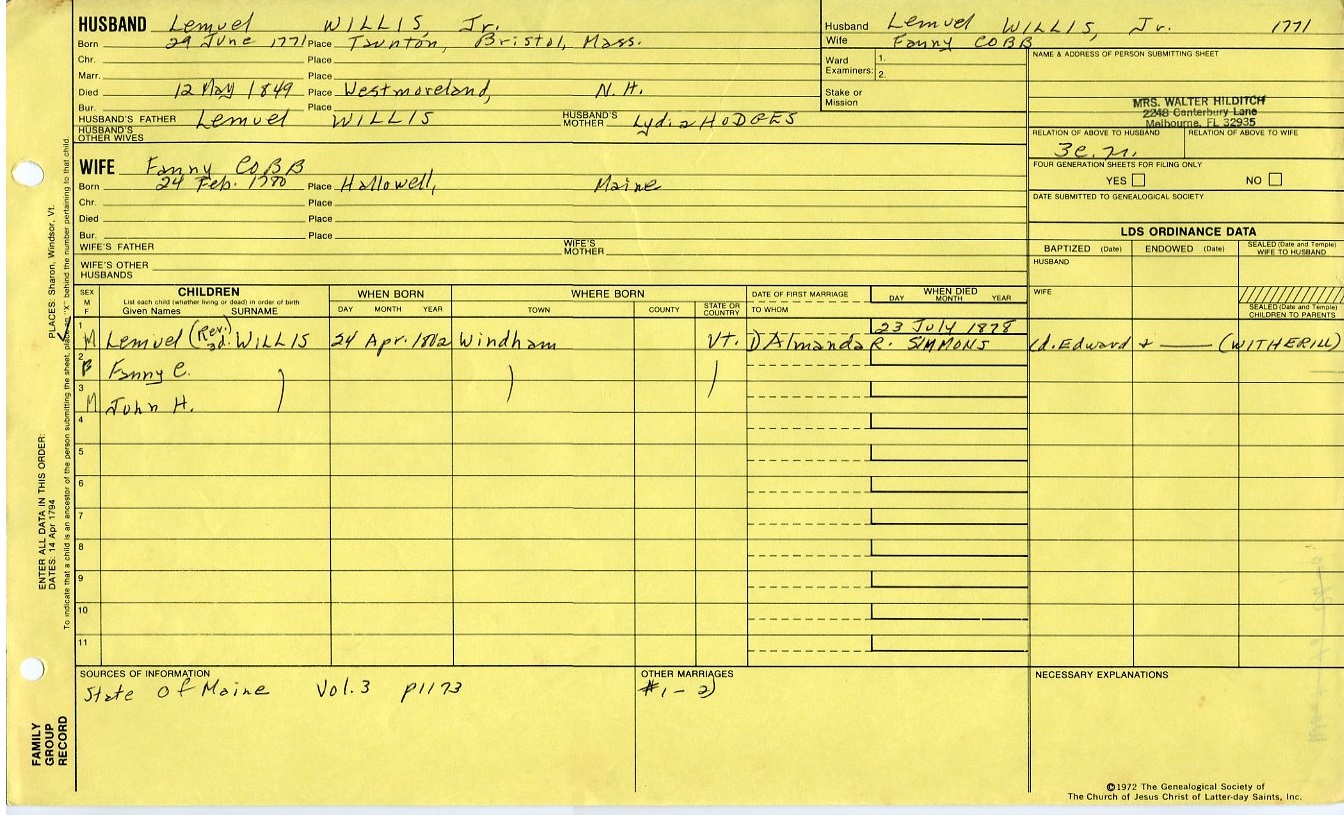 HUSBAND Lemuel WILLIS, Jr.
Born 29 June 1771 Place Taunton, Bristol, Mass.
Chr. Place
Marr. Place
Died 12 May 1849 Place Westmoreland, N.H.
Bur. Place
HUSBAND'S FATHER Lemuel WILLIS HUSBAND'S MOTHER Lydia HODGES
HUSBAND'S OTHER WIVES
WIFE Fanny COBB
Born 24 Feb. 1780 Place Hallowell, Maine
Chr. Place
Died Place
Bur. Place
WIFE'S FATHER WIFE'S MOTHER
WIFE'S OTHER HUSBANDS
Husband Lemuel WILLIS, Jr. 1771
Wife Fanny COBB
Ward Examiners: 1.
2.
Stake or Mission
NAME & ADDRESS OF PERSON SUBMITTING SHEET
MRS. WALTER HILDITCH
2248 Canterbury Lane
Melbourne, FL 32935
RELATION OF ABOVE TO HUSBAND RELATION OF ABOVE TO WIFE
FOUR GENERATION SHEETS FOR FILING ONLY
YES NO
DATE SUBMITTED TO GENEALOGICAL SOCIETY
LDS ORDINANCE DATA
BAPTIZED (Date) ENDOWED (Date) SEALED (Date and Temple) WIFE TO HUSBAND
HUSBAND
WIFE
SEALED (Date and Temple) CHILDREN TO PARENTS
SEX M F CHILDREN WHEN BORN WHERE BORN DATE OF FIRST MARRIAGE WHEN DIED
List each child (whether living or dead) in order of birth
Given Names SURNAME DAY MONTH YEAR TOWN COUNTY STATE OR COUNTRY TO WHOM DAY MONTH YEAR
23 July 1878
1 M Lemuel (Rev.) 3d. WILLIS 24 Apr. 1802 Windham Vt. 1) Almanda R. SIMMONS (d. Edward + —— (WITHERILL)
2 Fanny C.
3 M John H.
4
5
6
7
8
9
10
11
SOURCES OF INFORMATION
State of Maine Vol. 3 p1173
OTHER MARRIAGES
#1-2)
NECESSARY EXPLANATIONS
©1972 The Genealogical Society of
The Church of Jesus Christ of Latter-day Saints, Inc.
PLACES: Sharon, Windsor, Vt.
ENTER ALL DATA IN THIS ORDER:
DATES: 14 Apr 1794
To indicate that a child is an ancestor of the person submitting the sheet, place an "X" behind the number pertaining to that child.
FAMILY
GROUP
RECORD